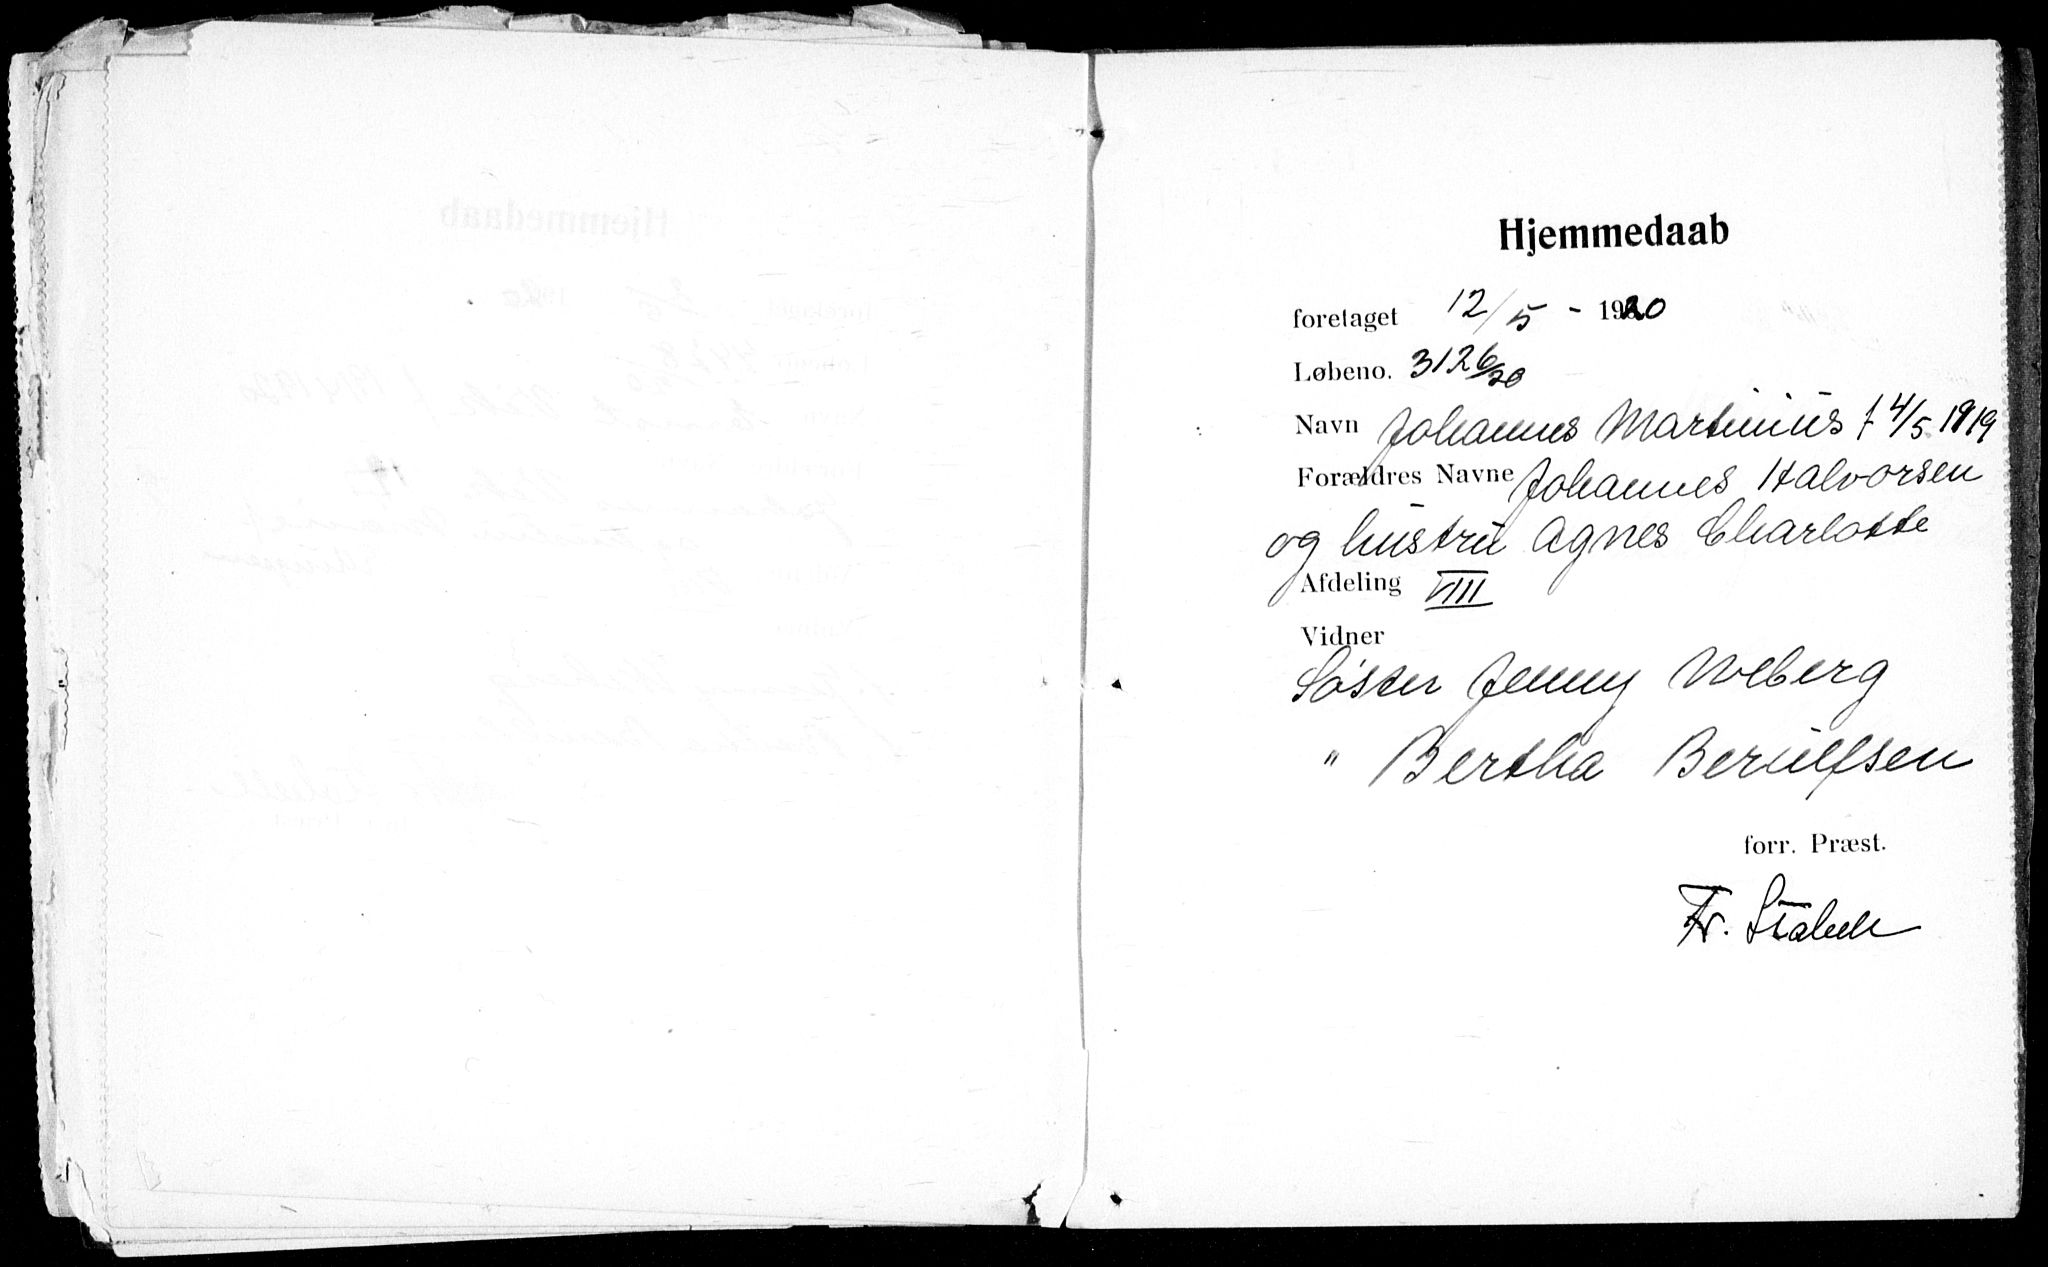 Hjemmedaab
foretaget 12/5 - 1920
Løbeno. 3126/20
Navn Johannes Martinius f 4/5 1919
Forældres Navne Johannes Halvorsen
og hustru Agnes Charlotte
Afdeling VIII
Vidner
Søster Jenny Moberg
" Bertha Berulfsen
forr. Præst.
Fr. Stabell